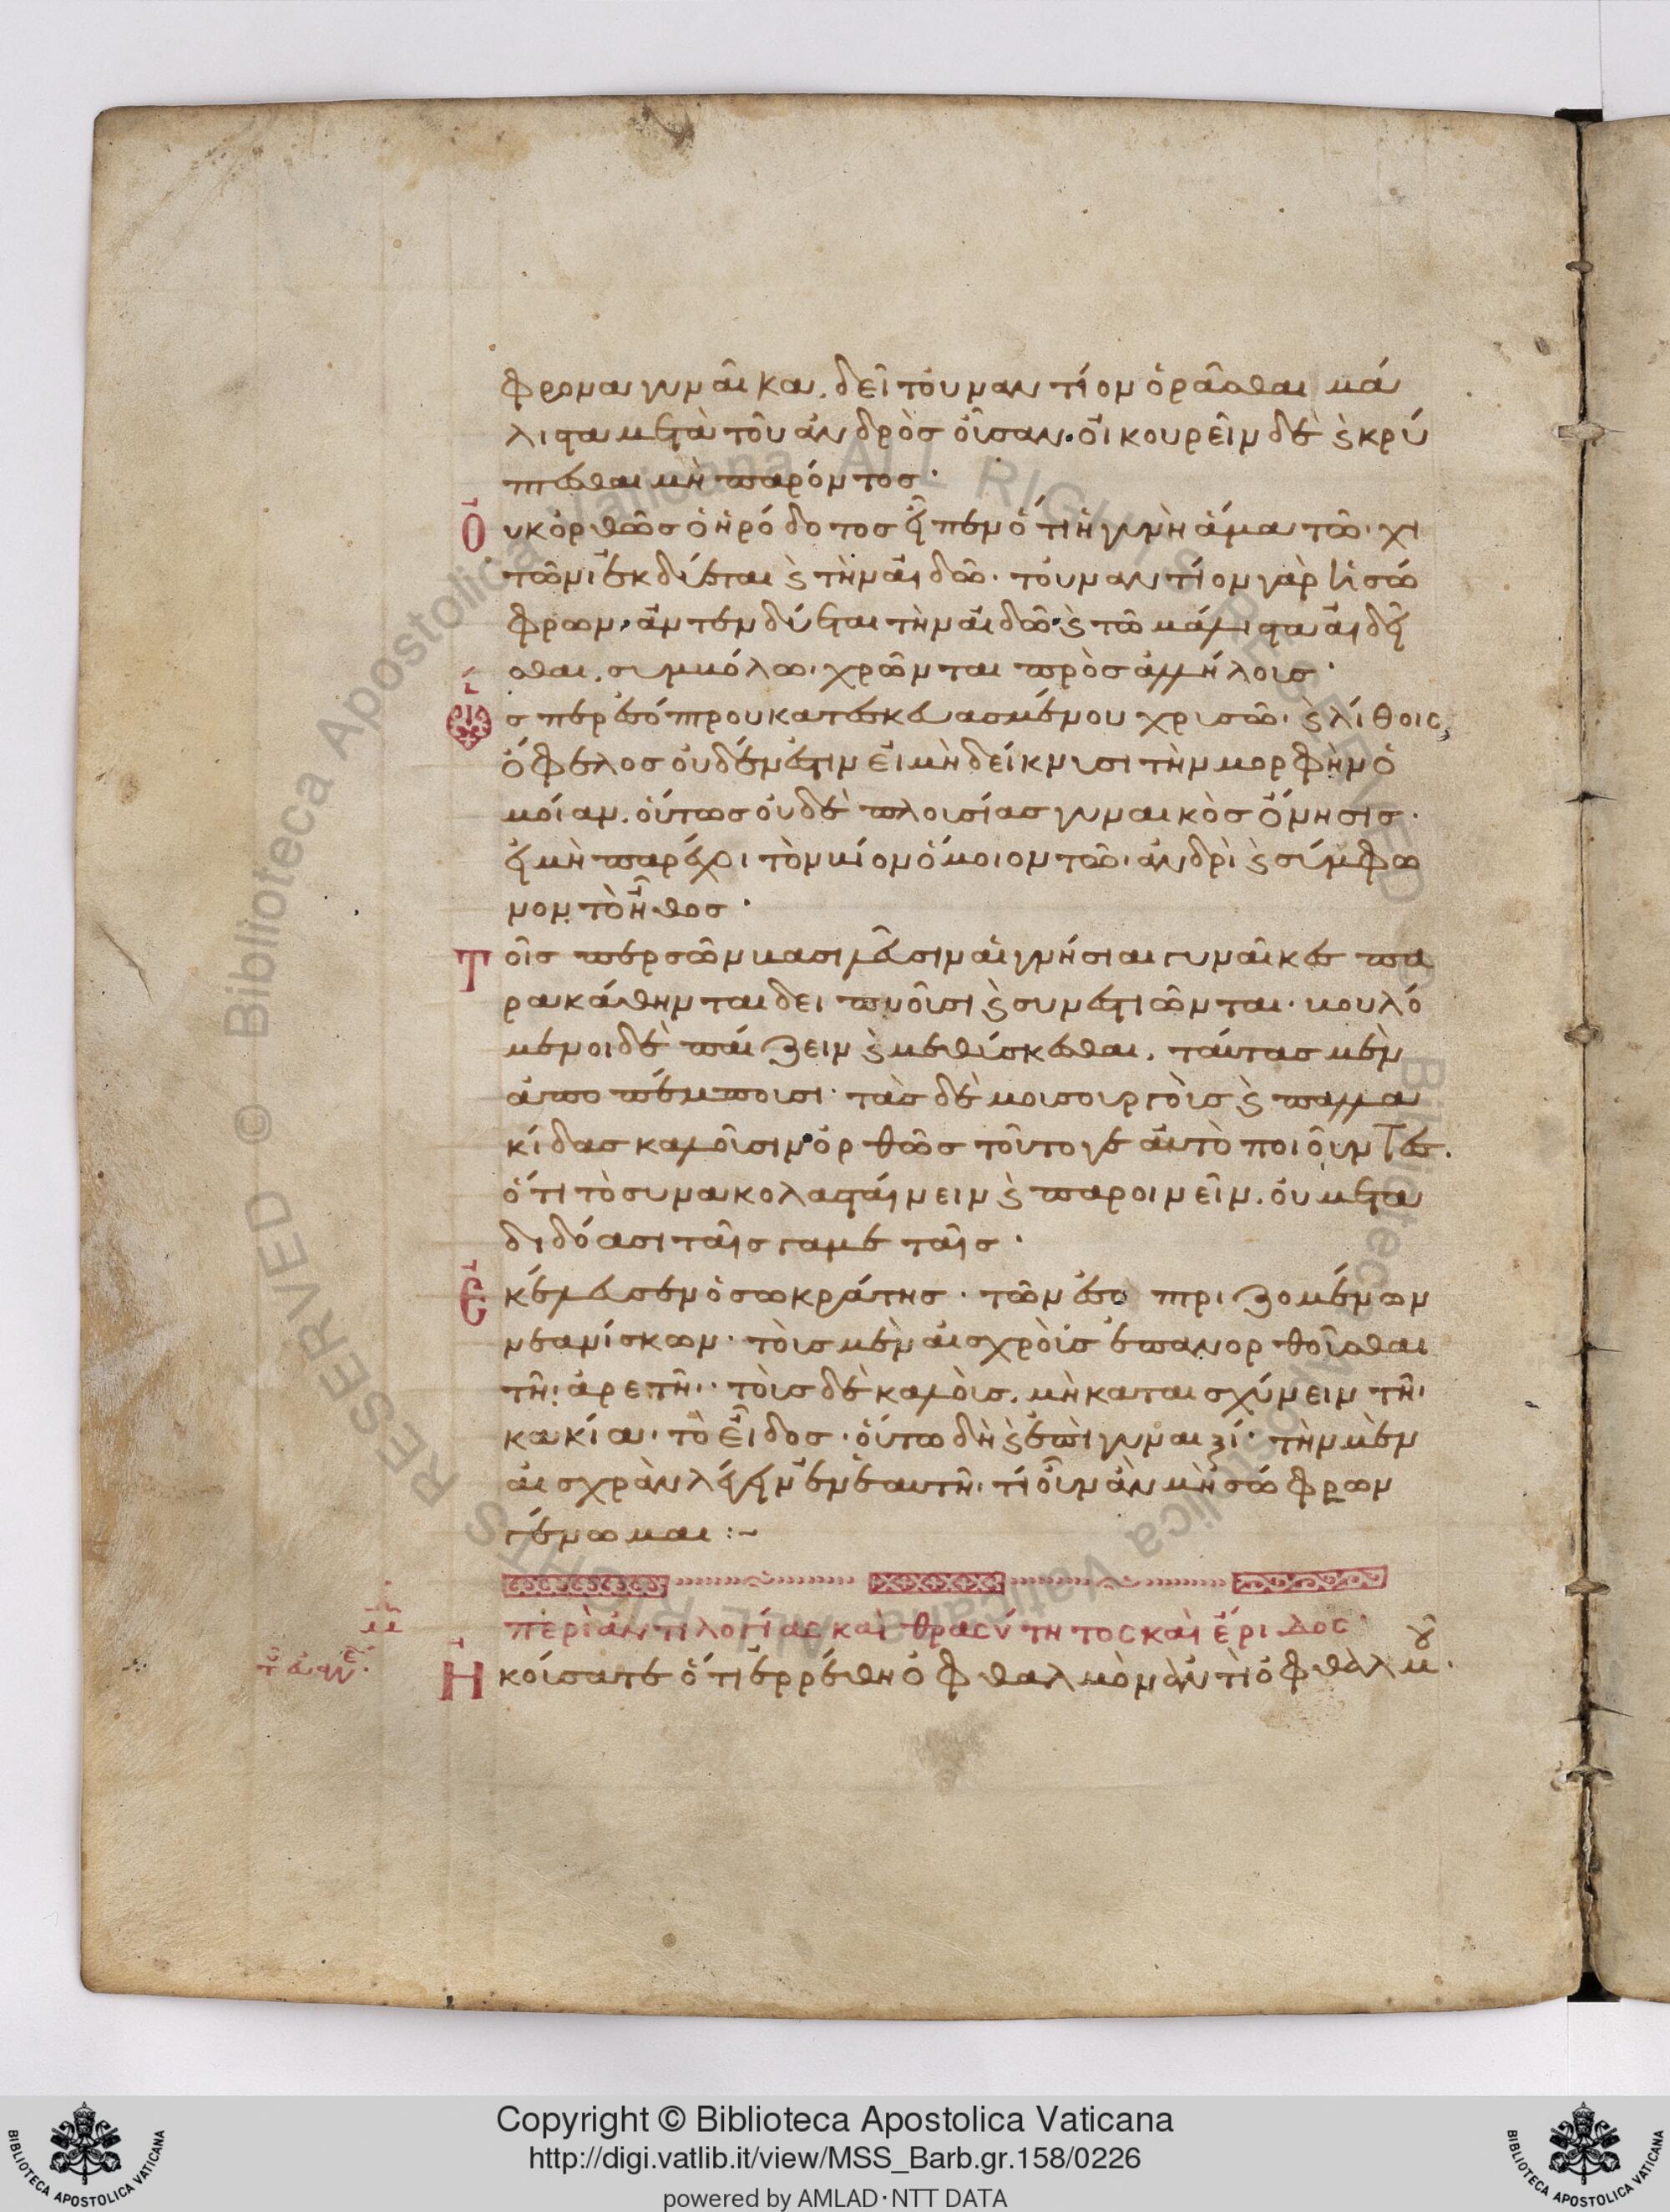 φρονα γυναῖκα. δεῖ τουναντίον ὁρᾶσθαι μά
λιστα μετὰ τοῦ ἀνδρὸσ οὖσαν. οἰκουρεῖν δὲ ϗ κρύ
πτεσθαι μὴ παρόντοσ·
Ουκ ὀρθῶσ ὁ ἡρόδοτοσ εἶπεν ὅτι ἡ γυνὴ ἅμα τῶ χι
τῶνι ἐκδύεται ϗ τὴν αἰδῶ· τουναντίον γὰρ ἡ σώ
φρων, ἀντενδύεται τὴν αἰδῶ· ϗ τῶ μάλιστα αἰδεῖ
σθαι, συμβόλω χρῶνται πρὸσ ἀλλήλουσ·
Ὥσπερ ἐσόπτρου κατεσκευασμένου χρυσῶ ϗ λίθοις,
ὄφελοσ οὐδέν ἐστιν εἰ μὴ δείκνυσι τὴν μορφὴν ὁ
μοίαν. οὕτωσ οὐδὲ πλουσίασ γυναικὸσ ὄνησισ·
εἰ μὴ παρέχοι τὸν βίον ὅμοιον τῶ ἀνδρὶ ϗ σύμφω
νον τὸ ἦθοσ·
Τοῖσ περσῶν βασιλεῦσιν αἱ γνήσιαι γυναῖκεσ πα
ρακάθηνται δειπνοῦσι ϗ συνεστιῶνται· βουλό
μενοι δὲ παίζειν ϗ μεθύσκεσθαι, ταύτασ μὲν
ἀποπέμπουσι· τὰσ δὲ μουσουργοὺσ ϗ παλλα
κίδασ καλοῦσιν· ὀρθῶσ τοῦτο γε αὐτὸ ποιοῦντεσ.
ὅτι τὸ συνακολασταίνειν ϗ παροινεῖν. οὐ μετα
διδόασι ταῖσ γαμεταῖσ·
Ἐκέλευσεν ὁ σωκράτησ· τῶν ἐσοπτριζομένων
νεανίσκων· τοὺσ μὲν αἰσχροὺσ ἐπανορθοῦσθαι
τῆ ἀρετῆ· τοὺσ δὲ καλοὺσ, μὴ καταισχύνειν τῆ
κακία τὸ εἶδοσ· οὕτω δὴ ϗ ἐπὶ γυναιξί· τὴν μὲν
αἰσχρὰν λέγειν ἐν ἑαυτῆ· τί οὖν ἂν μὴ σώφρων
γένωμαι :~
περὶ ἀντιλογίας καὶ θρασύτητος καὶ ἔριδος·
Ηκούσατε ὅτι ἐρρέθη ὀφθαλμὸν ἀντὶ ὀφθαλμοῦ·